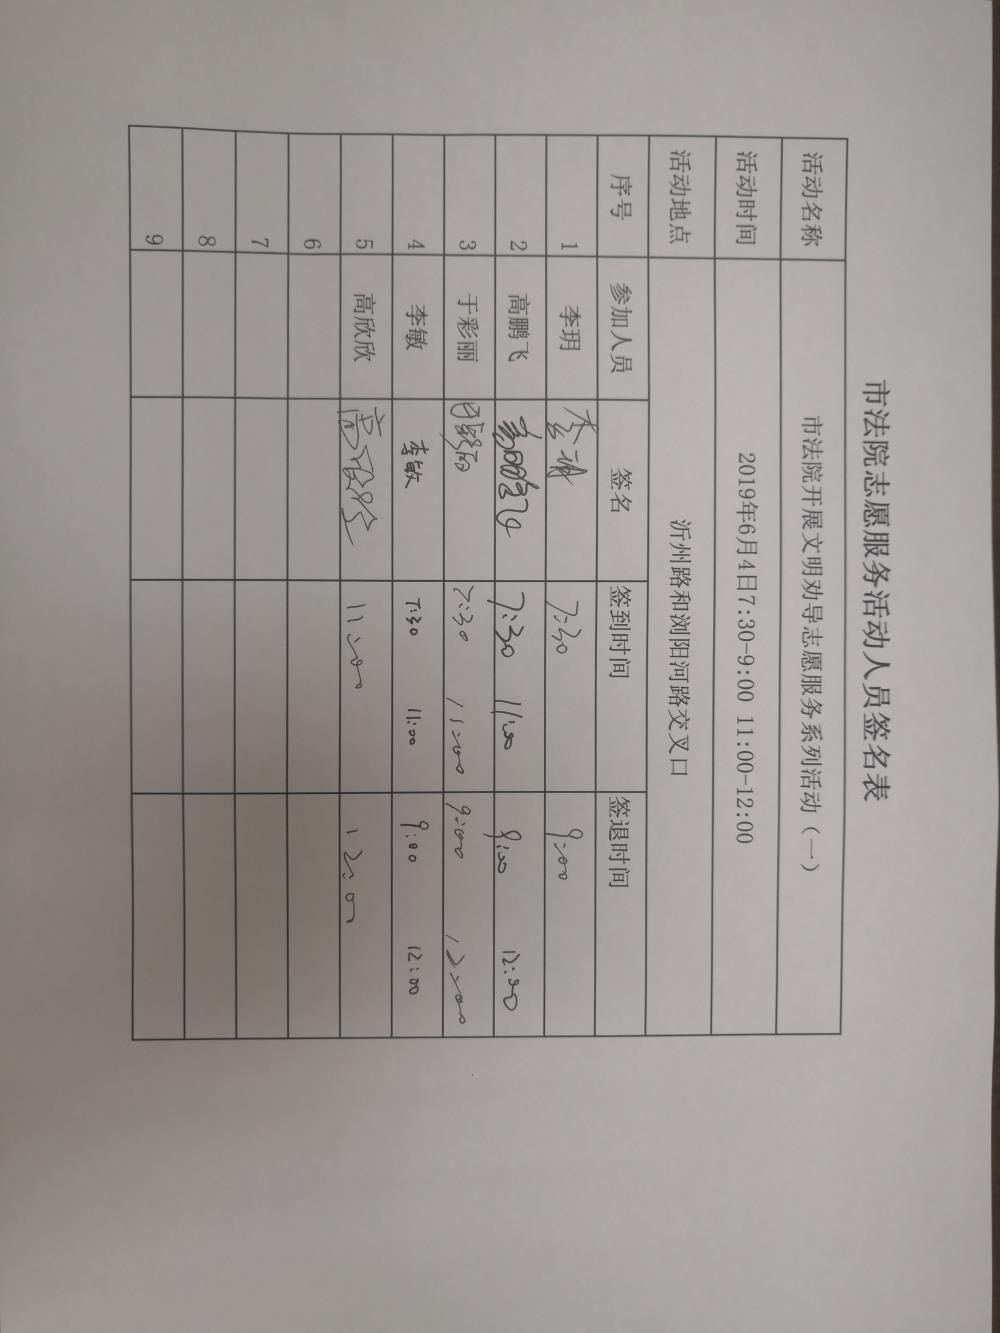 市法院志愿服务活动人员签名表
活动名称 市法院开展文明劝导志愿服务系列活动（一）
活动时间 2019年6月4日7:30-9:00 11:00-12:00
活动地点 沂州路和浏阳河路交叉口
序号 参加人员 签名 签到时间 签退时间
1 李玥 李玥 7:30 9:00
2 高鹏飞 高鹏飞 7:30 11:00 9:00 12:00
3 于彩丽 于彩丽 7:30 11:00 9:00 12:00
4 李敏 李敏 7:30 11:00 9:00 12:00
5 高欣欣 11:00 12:00
6
7
8
9